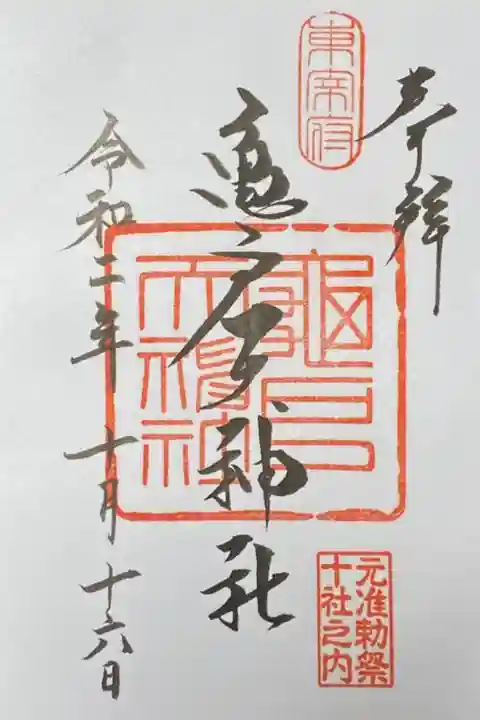 奉拝
東宰府
亀戸天神社
元准勅祭
十社之内
令和二年 十月 十六日